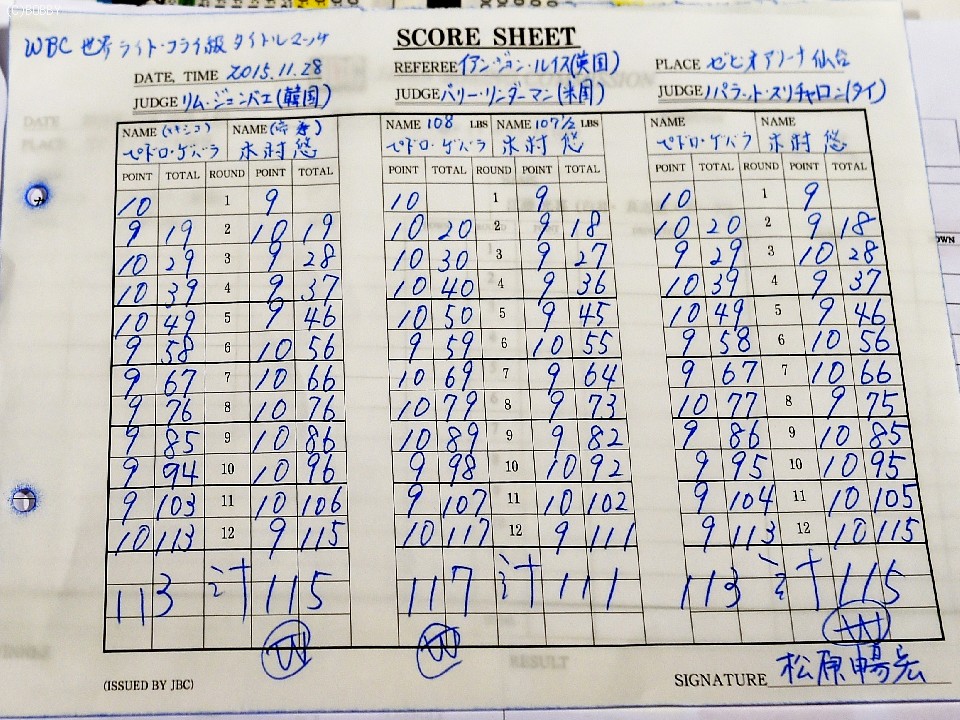 (C)BOBBY
SCORE SHEET
WBC 世界ライト・フライ級 タイトルマッチ
DATE, TIME 2015.11.28
REFEREE イアン・ジョン・ルイス(英国)
PLACE ゼビオアリーナ仙台
JUDGE リム・ジュンバエ(韓国)
JUDGE バリー・リンダーマン(米国)
JUDGE パラット・スリチャロン(タイ)
NAME (メキシコ) NAME (帝拳) NAME 108 LBS NAME 107 1/2 LBS NAME NAME
ペドロ・ゲバラ 木村 悠 ペドロ・ゲバラ 木村 悠 ペドロ・ゲバラ 木村 悠
POINT TOTAL ROUND POINT TOTAL POINT TOTAL ROUND POINT TOTAL POINT TOTAL ROUND POINT TOTAL
10 1 9 10 1 9 10 1 9
9 19 2 10 19 10 20 2 9 18 10 20 2 9 18
10 29 3 9 28 10 30 3 9 27 9 29 3 10 28
10 39 4 9 37 10 40 4 9 36 10 39 4 9 37
10 49 5 9 46 10 50 5 9 45 10 49 5 9 46
9 58 6 10 56 9 59 6 10 55 9 58 6 10 56
9 67 7 10 66 10 69 7 9 64 9 67 7 10 66
9 76 8 10 76 10 79 8 9 73 10 77 8 9 75
9 85 9 10 86 10 89 9 9 82 9 86 9 10 85
9 94 10 10 96 9 98 10 10 92 9 95 10 10 95
9 103 11 10 106 9 107 11 10 102 9 104 11 10 105
10 113 12 9 115 10 117 12 9 111 9 113 12 10 115
113 計 115 117 計 111 113 計 115
W W W
(ISSUED BY JBC)
RESULT
SIGNATURE 松原暢宏